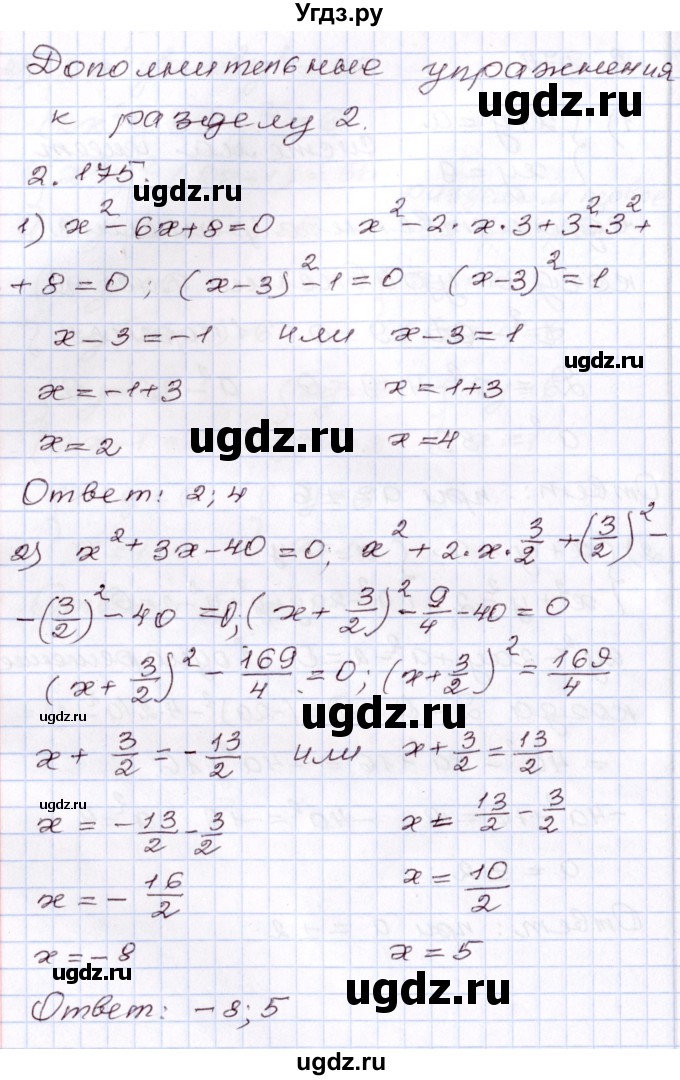 Угдз.ру
Дополнительные упражнения
к разделу 2.
ugdz.ru
2.175.
ugdz.ru
1) x² - 6x + 8 = 0   x² - 2·x·3 + 3² - 3² +
+ 8 = 0; (x - 3)² - 1 = 0   (x - 3)² = 1
x - 3 = -1 или x - 3 = 1
ugdz.ru
x = -1 + 3   x = 1 + 3
ugdz.ru
x = 2   x = 4
ugdz.ru
Ответ: 2; 4
2) x² + 3x - 40 = 0; x² + 2·x·3/2 + (3/2)² -
- (3/2)² - 40 = 0; (x + 3/2)² - 9/4 - 40 = 0
(x + 3/2)² - 169/4 = 0; (x + 3/2)² = 169/4
ugdz.ru
ugdz.ru
x + 3/2 = -13/2 или x + 3/2 = 13/2
ugdz.ru
x = -13/2 - 3/2   x = 13/2 - 3/2
x = -16/2   x = 10/2
x = -8   x = 5
ugdz.ru
ugdz.ru
Ответ: -8; 5
ugdz.ru